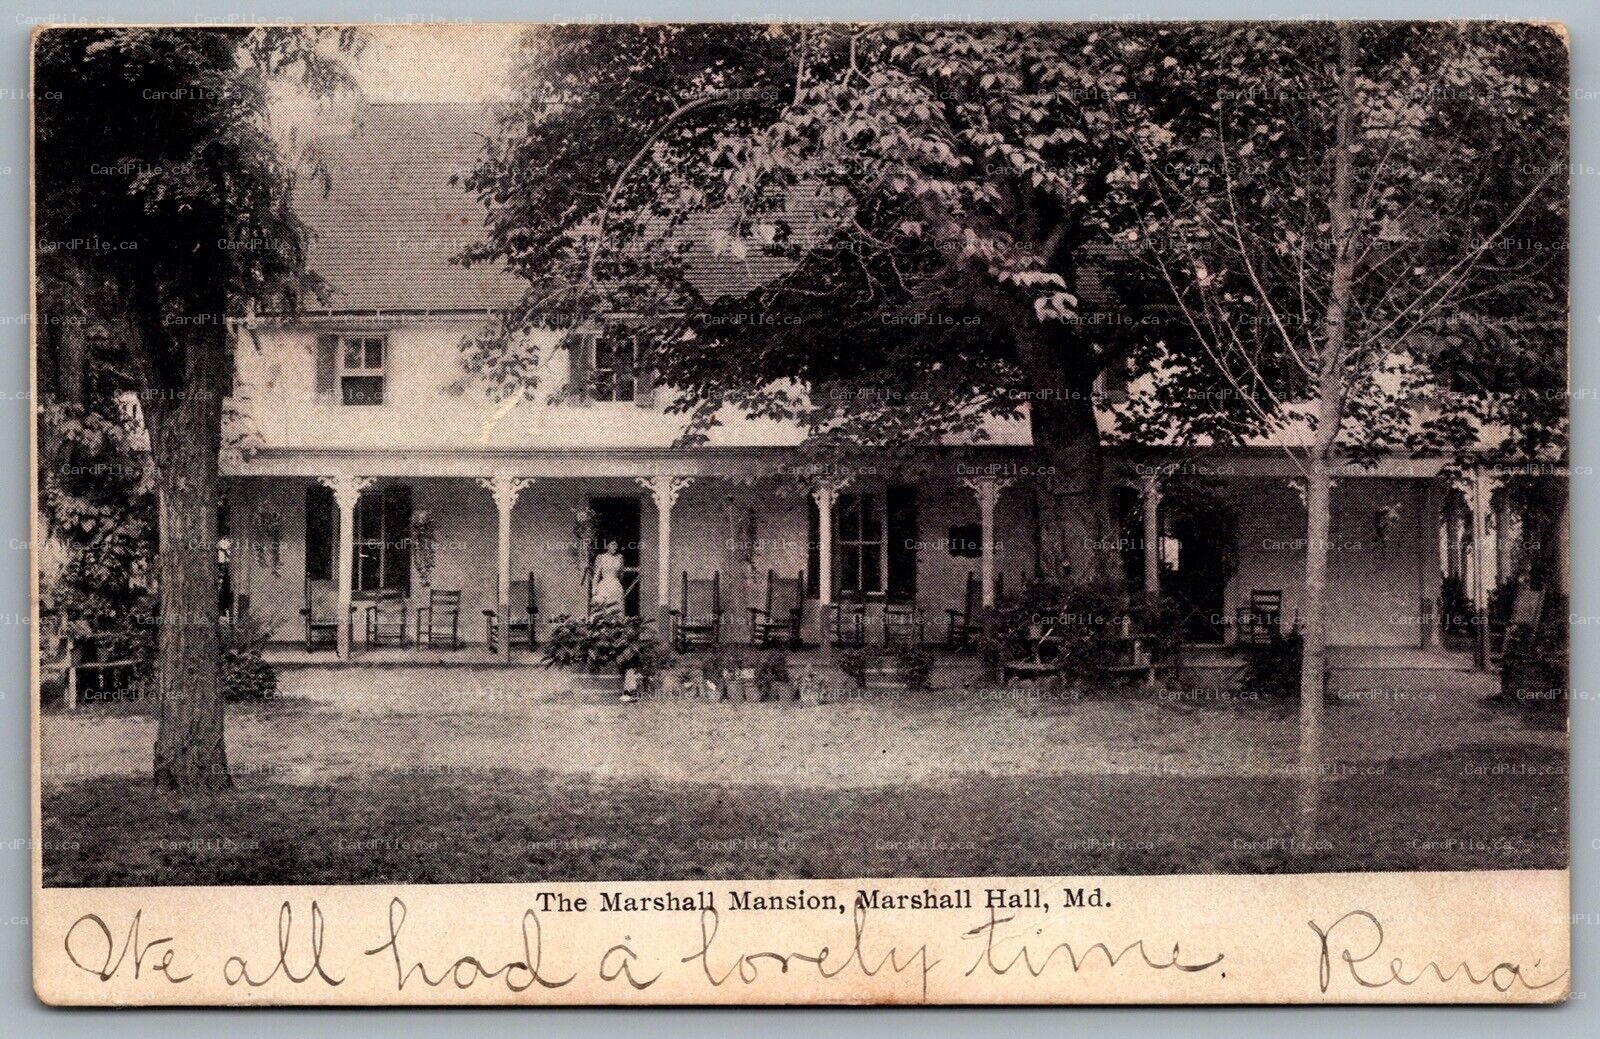 The Marshall Mansion, Marshall Hall, Md.
We all had a lovely time. Rena
CardPile.ca